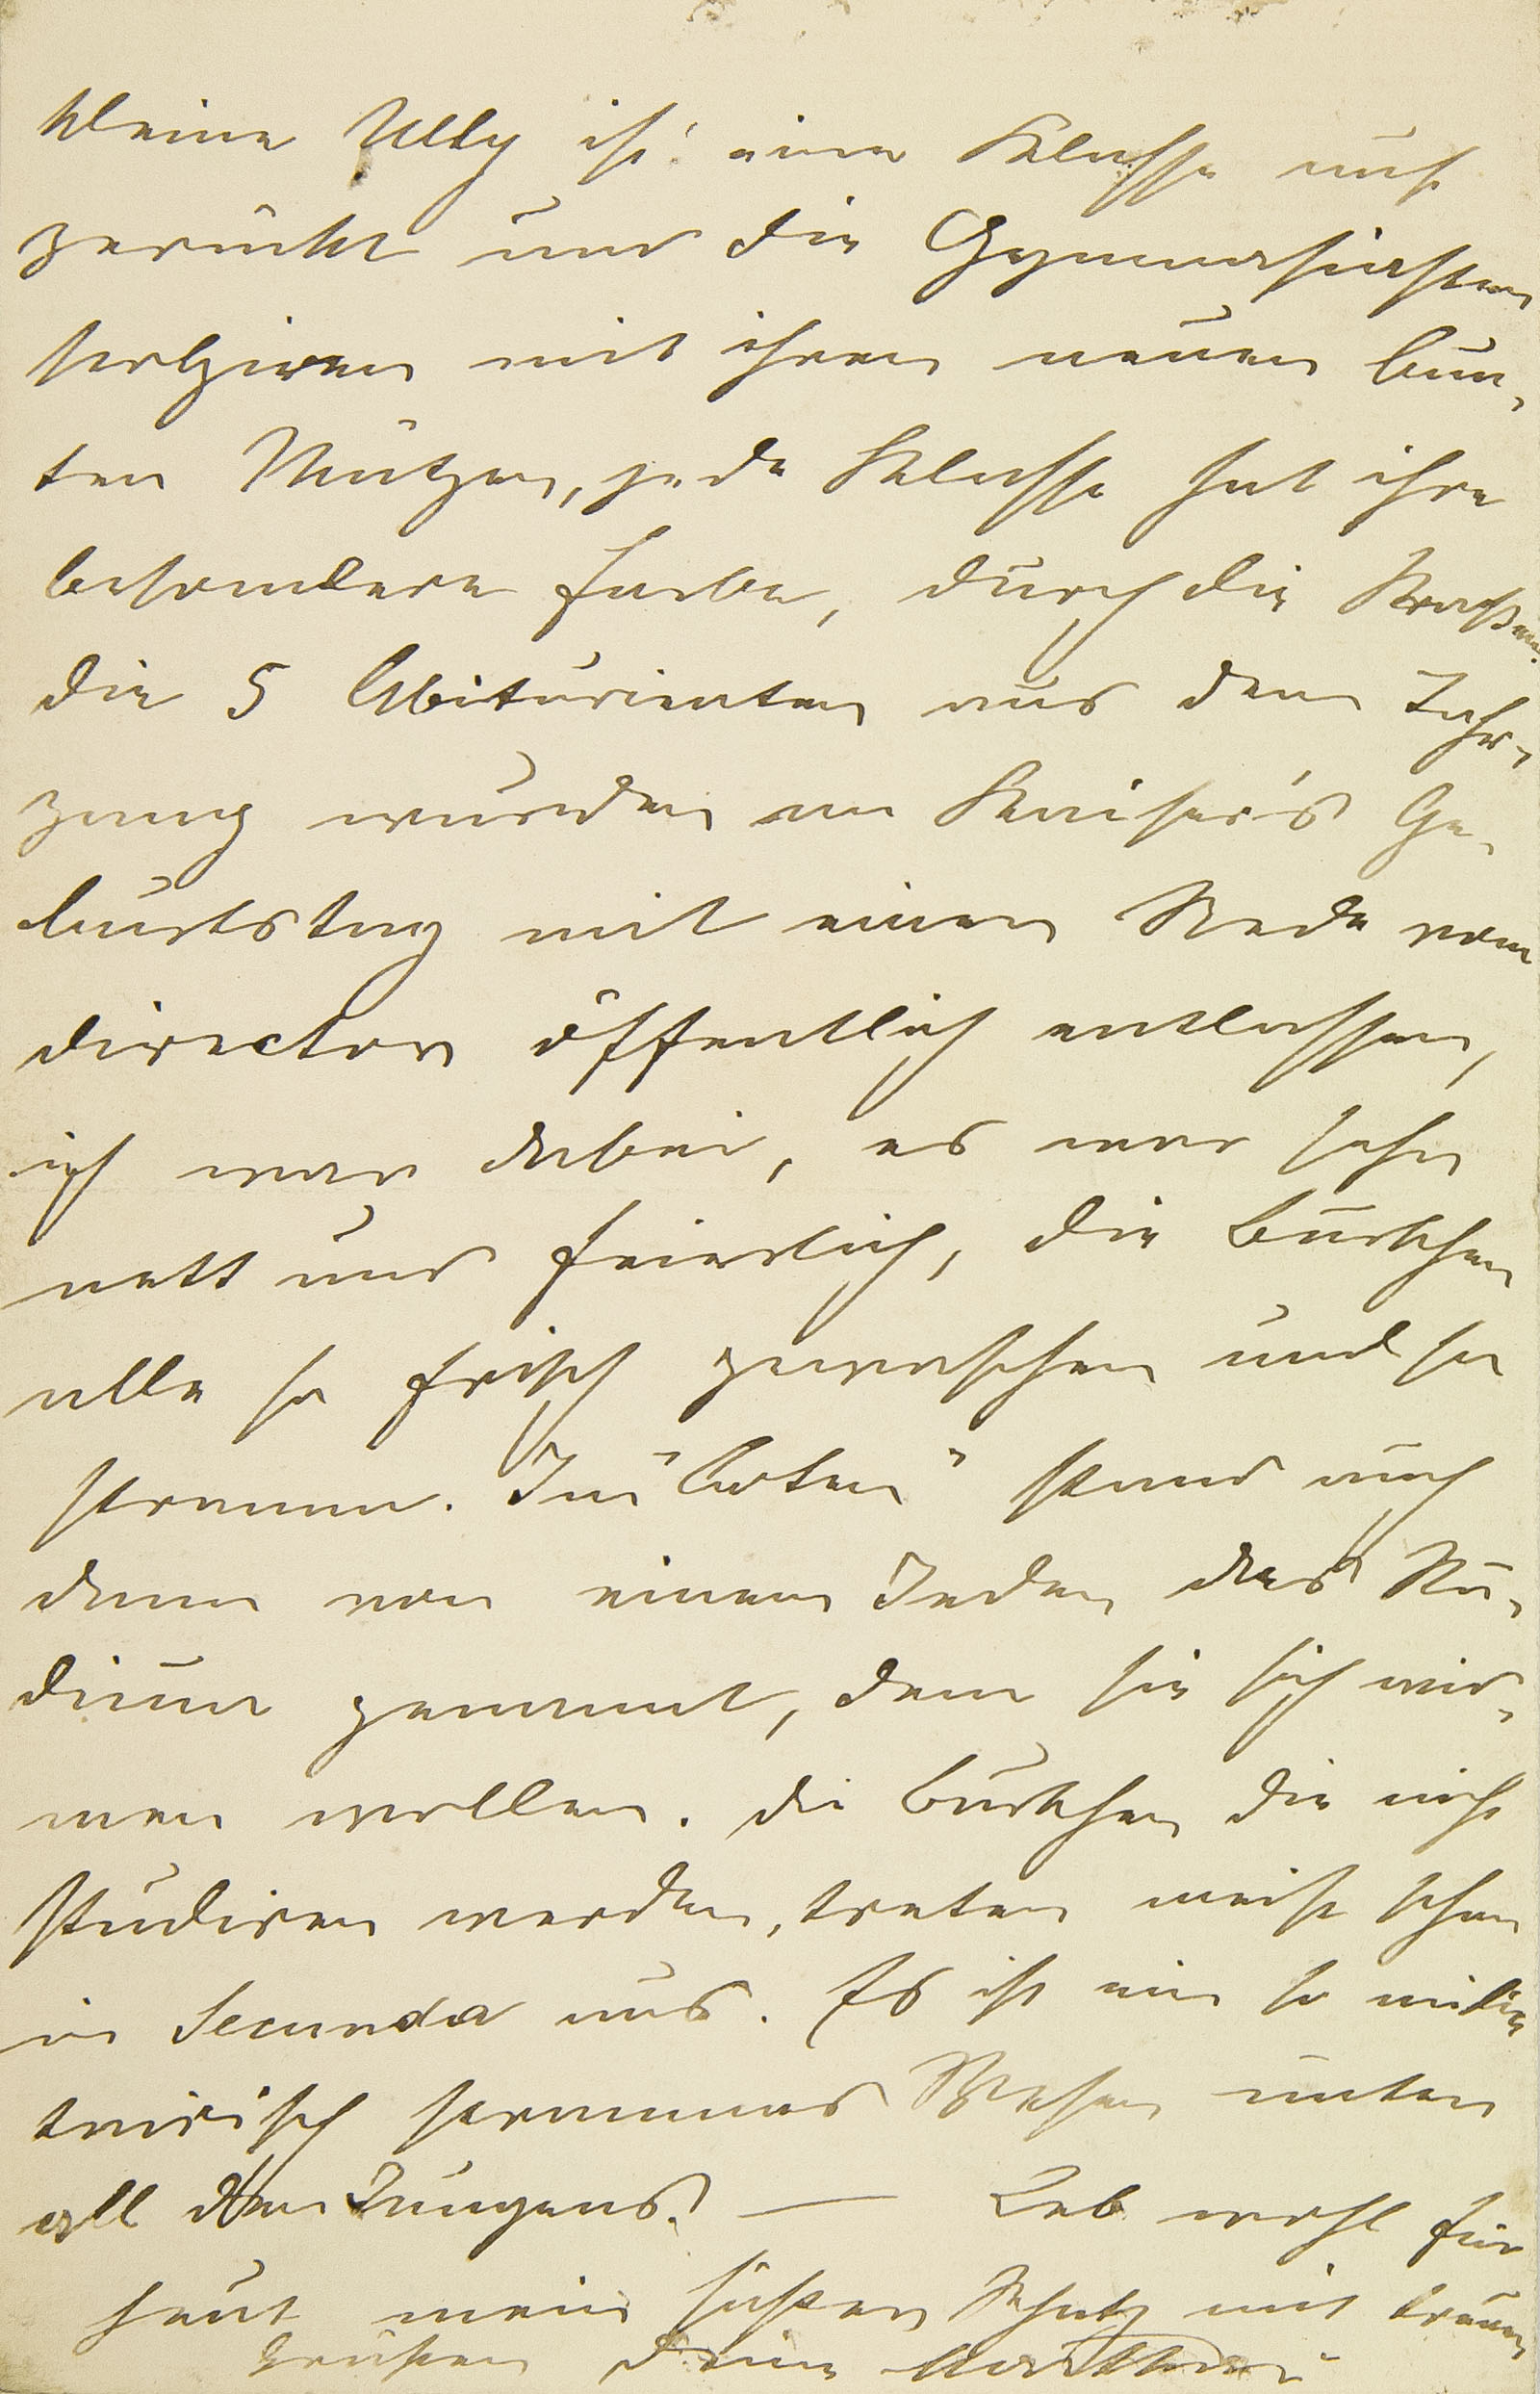 kleine Ully ist eine Klasse auf
gerückt und die Gymnasiasten
stolziren mit ihren neuen bun-
ten Mützen, jede Klasse hat ihre
besondere Farbe, durch die Straßen.
die 5 Abiturienten aus dem Jahr-
gang wurden an Kaiser's Ge-
burtstag mit einer Rede vom
Director öffentlich entlassen,
ich war dabei, es war sehr
nett und feierlich, die Burschen
alle so frisch gewaschen und so
stramm. Im "" stand auch
denn von einem Jeden das Stu-
dium genannt, dem sie sich wid-
men wollen. die Burschen die nicht
studiren werden, treten meist schon
in Secunda aus. Es ist ein so mili-
tairisch strammes Wesen unter
all den Jungens. — Leb wohl für
heut mein süßer Schatz mit treuen
Grüßen Deine